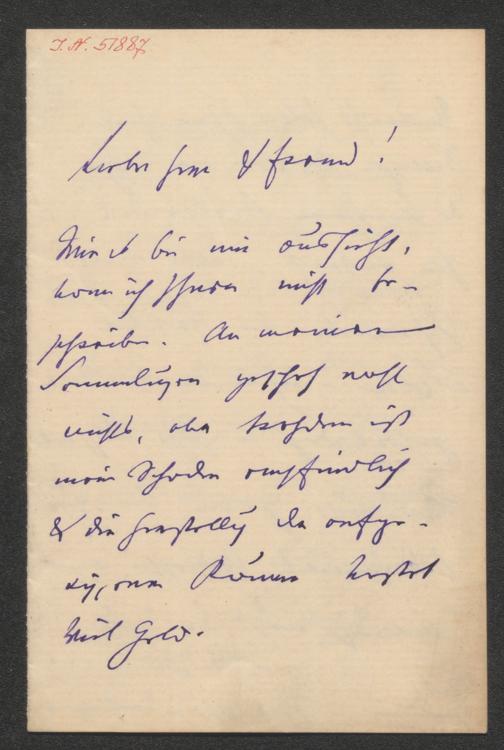 I.N. 51887
Lieber Herr & Freund!
Wie es bei mir aussieht,
kann ich Ihnen nicht be-
schreiben. An meinen
Sammlungen geschah wohl
nichts, aber trotzdem ist
mein Schaden empfindlich
& die Herstellung der
Räume kostet
viel Geld.